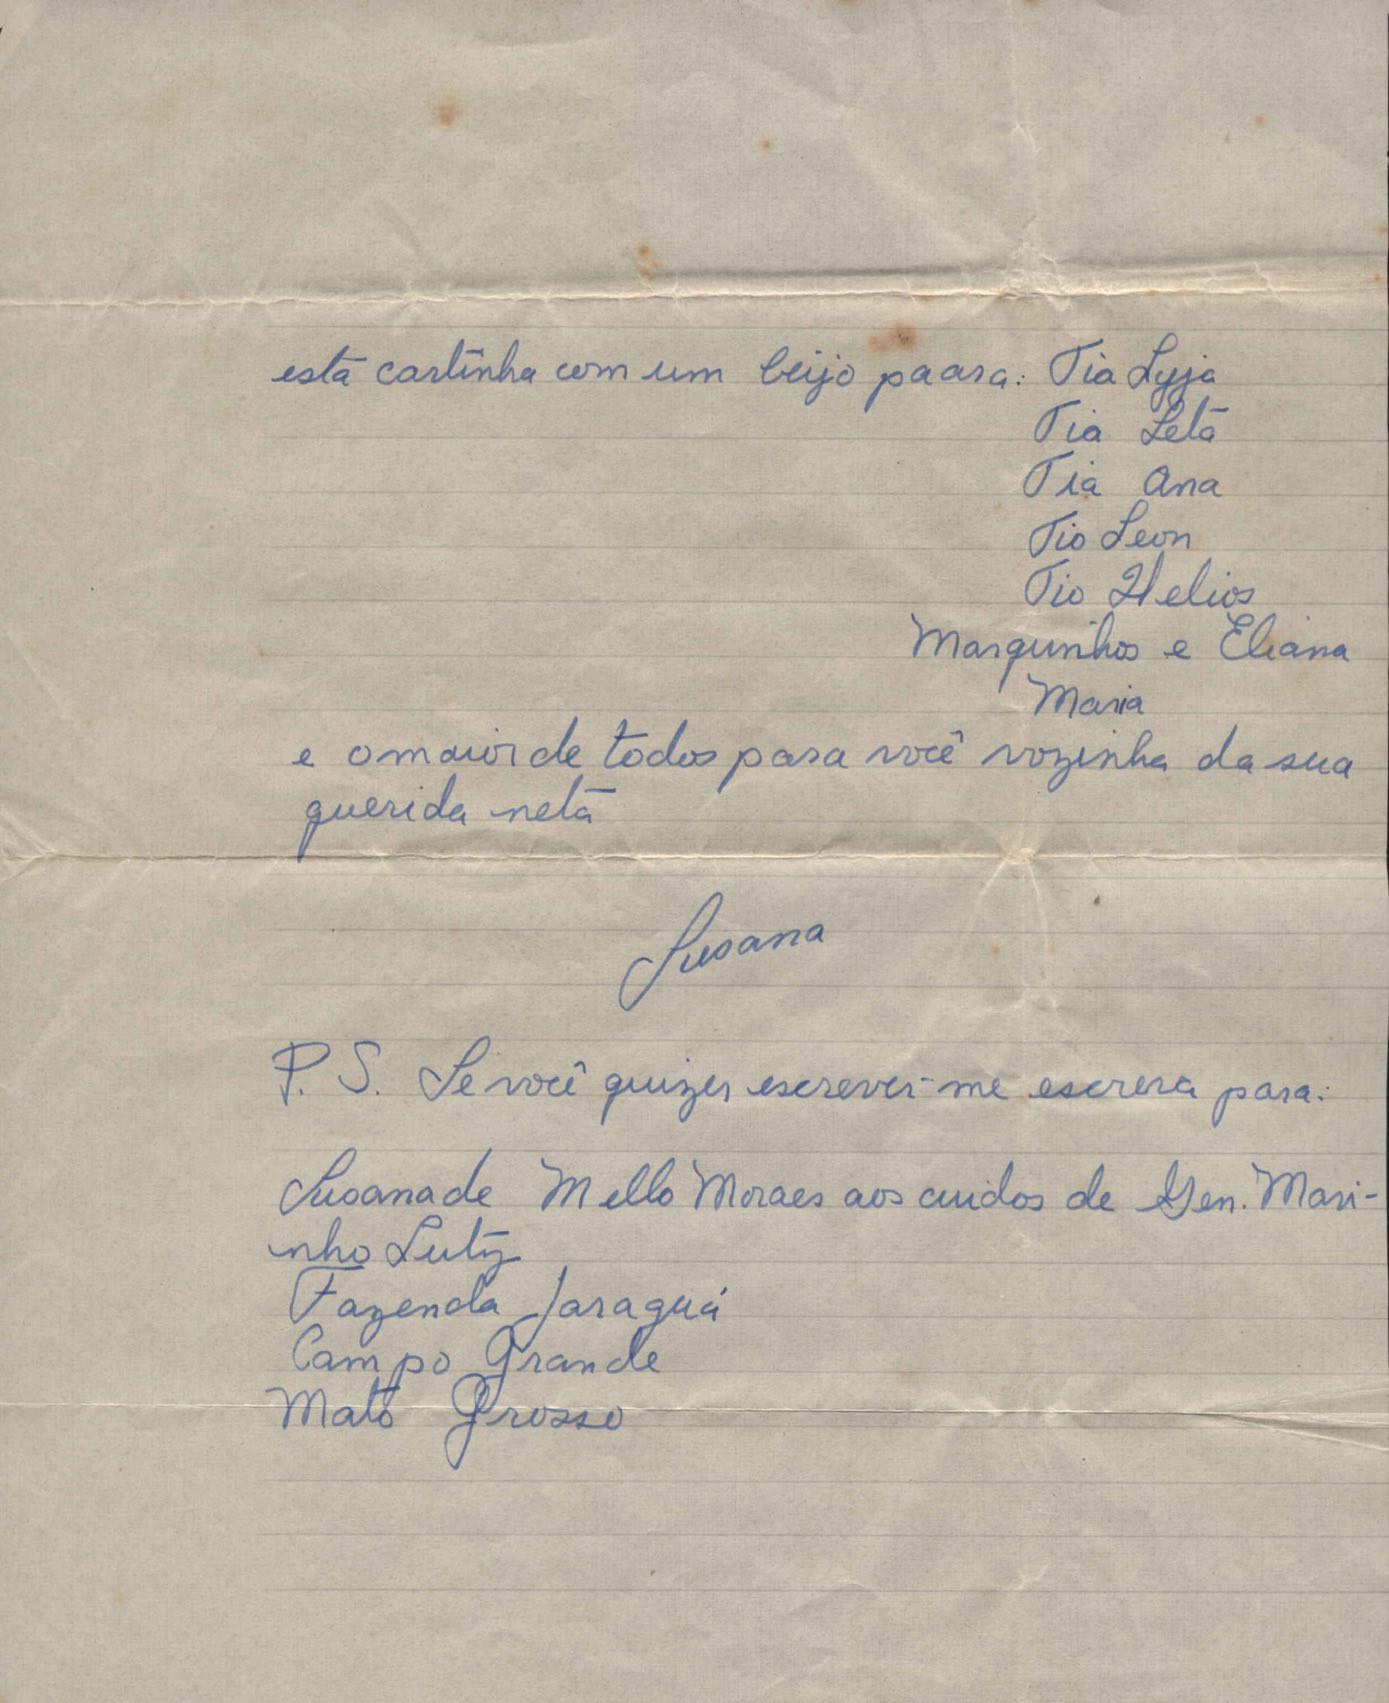 esta cartinha com um beijo paara: Tia Lyja
Tia Leta
Tia Ana
Tio Leon
Tio Helios
Marquinhos e Eliana
Maria
e o maior de todos para você vozinha da sua
querida neta
Susana
P. S. Se você quizer escrever-me escreva para:
Susana de Mello Moraes aos cuidos de Gen. Mari-
nho Lutz
Fazenda Jaraguá
Campo Grande
Mato Grosso